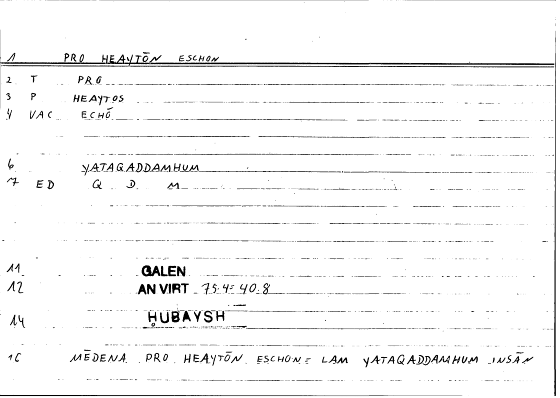 1 PRO HEAYTŌN ESCHON
2 T PRO
3 P HEAYTOS
4 VAC ECHŌ
6 YATAQADDAMHUM
7 ED Q D M
11 GALEN
12 AN VIRT 75.4 = 40.8
14 ḤUBAYSH
1C MĒDENA PRO HEAYTŌN ESCHON = LAM YATAQADDAMHUM INSĀN